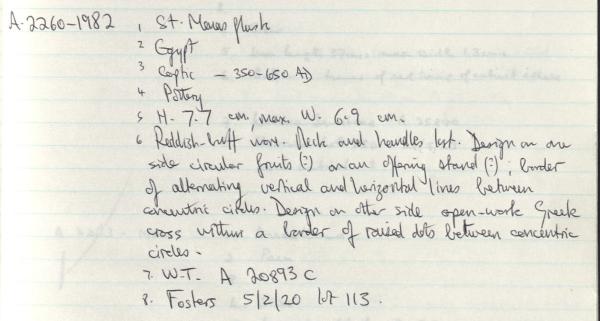 A.2260-1982 1 St. Menas flask
2 Egypt
3 Coptic - 350-650 AD
4 Pottery
5 H. 7.7 cm, max. W. 6.9 cm.
6 Reddish-buff ware. Neck and handles lost. Design on one
side circular fruits (?) on an offering stand (?); border
of alternating vertical and horizontal lines between
concentric circles. Design on other side open-work Greek
cross within a border of raised dots between concentric
circles.
7. W.T. A 20893 C
8. Fosters 5/2/20 lot 113.